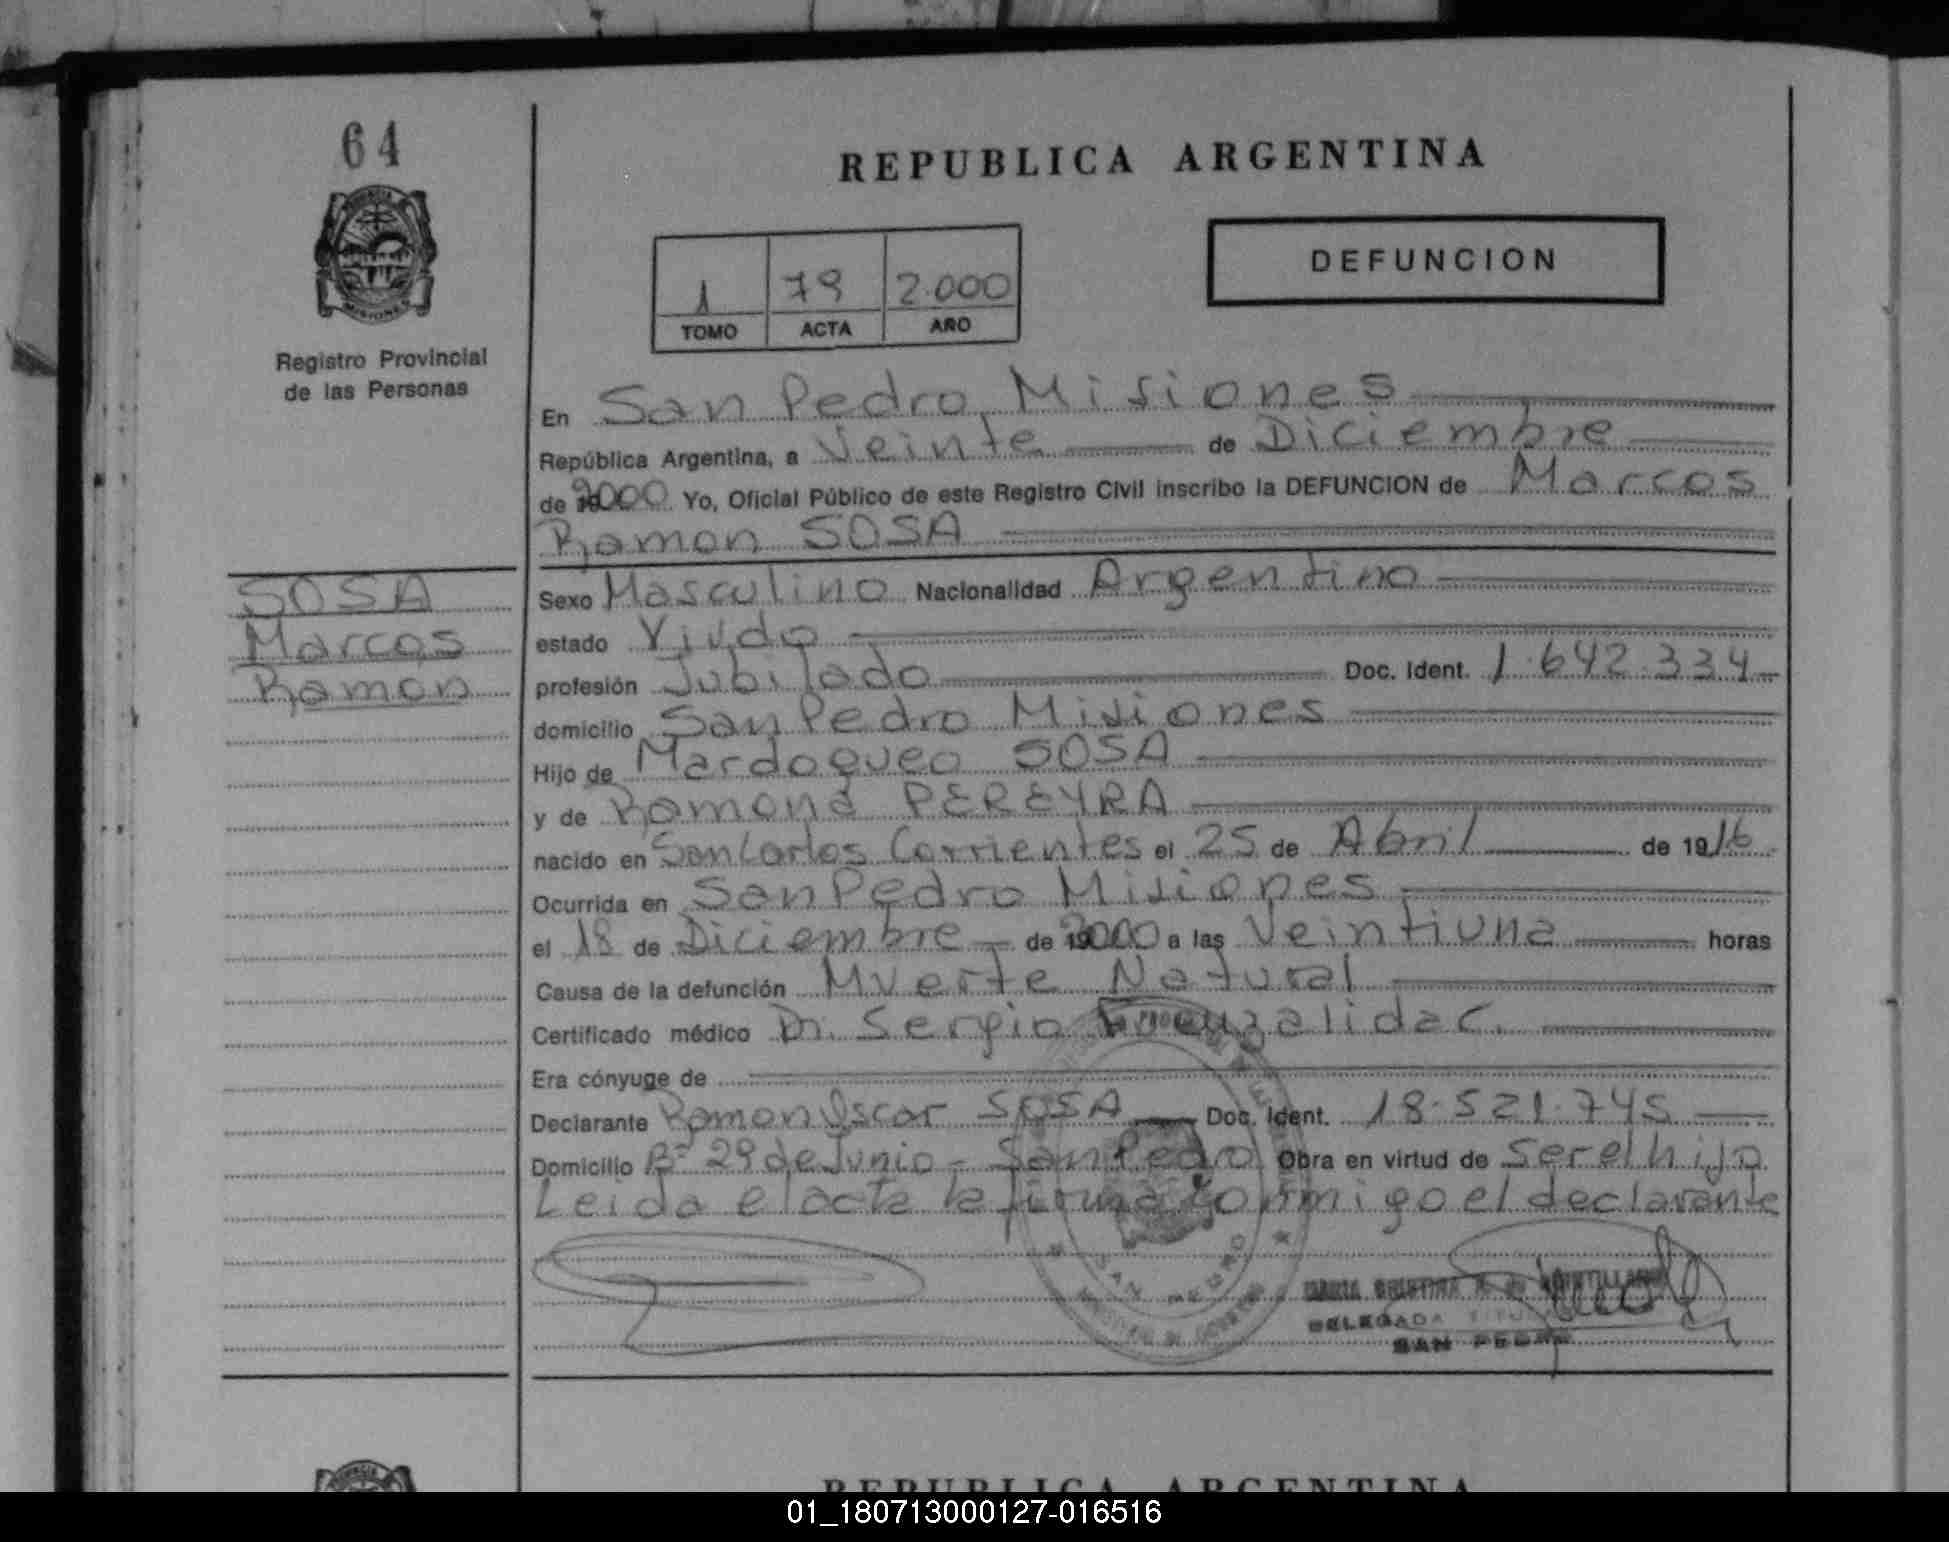 64
REPUBLICA ARGENTINA
DEFUNCION
1 79 2.000
TOMO ACTA AÑO
Registro Provincial
de las Personas
En San Pedro Misiones
República Argentina, a Veinte de Diciembre
de 2000 Yo, Oficial Público de este Registro Civil inscribo la DEFUNCION de Marcos
Ramon SOSA
SOSA
Marcos
Ramon
Sexo Masculino Nacionalidad Argentino
estado Viudo
profesión Jubilado Doc. Ident. 1.642.334
domicilio San Pedro Misiones
Hijo de Mardoqueo SOSA
y de Ramona PEREYRA
nacido en San Carlos Corrientes el 25 de Abril de 1916
Ocurrida en San Pedro Misiones
el 18 de Diciembre de 2000 a las Veintiuna horas
Causa de la defunción Muerte Natural
Certificado médico Dr. Sergio C.
Era cónyuge de
Declarante Ramon Oscar SOSA Doc. Ident. 18.521.745
Domicilio Bº 29 de Junio - San Pedro Obra en virtud de ser el hijo
Leida el acta la firma conmigo el declarante
SAN PEDRO
MARIA CRISTINA
DELEGADA
SAN PEDRO
REPUBLICA ARGENTINA
01_180713000127-016516